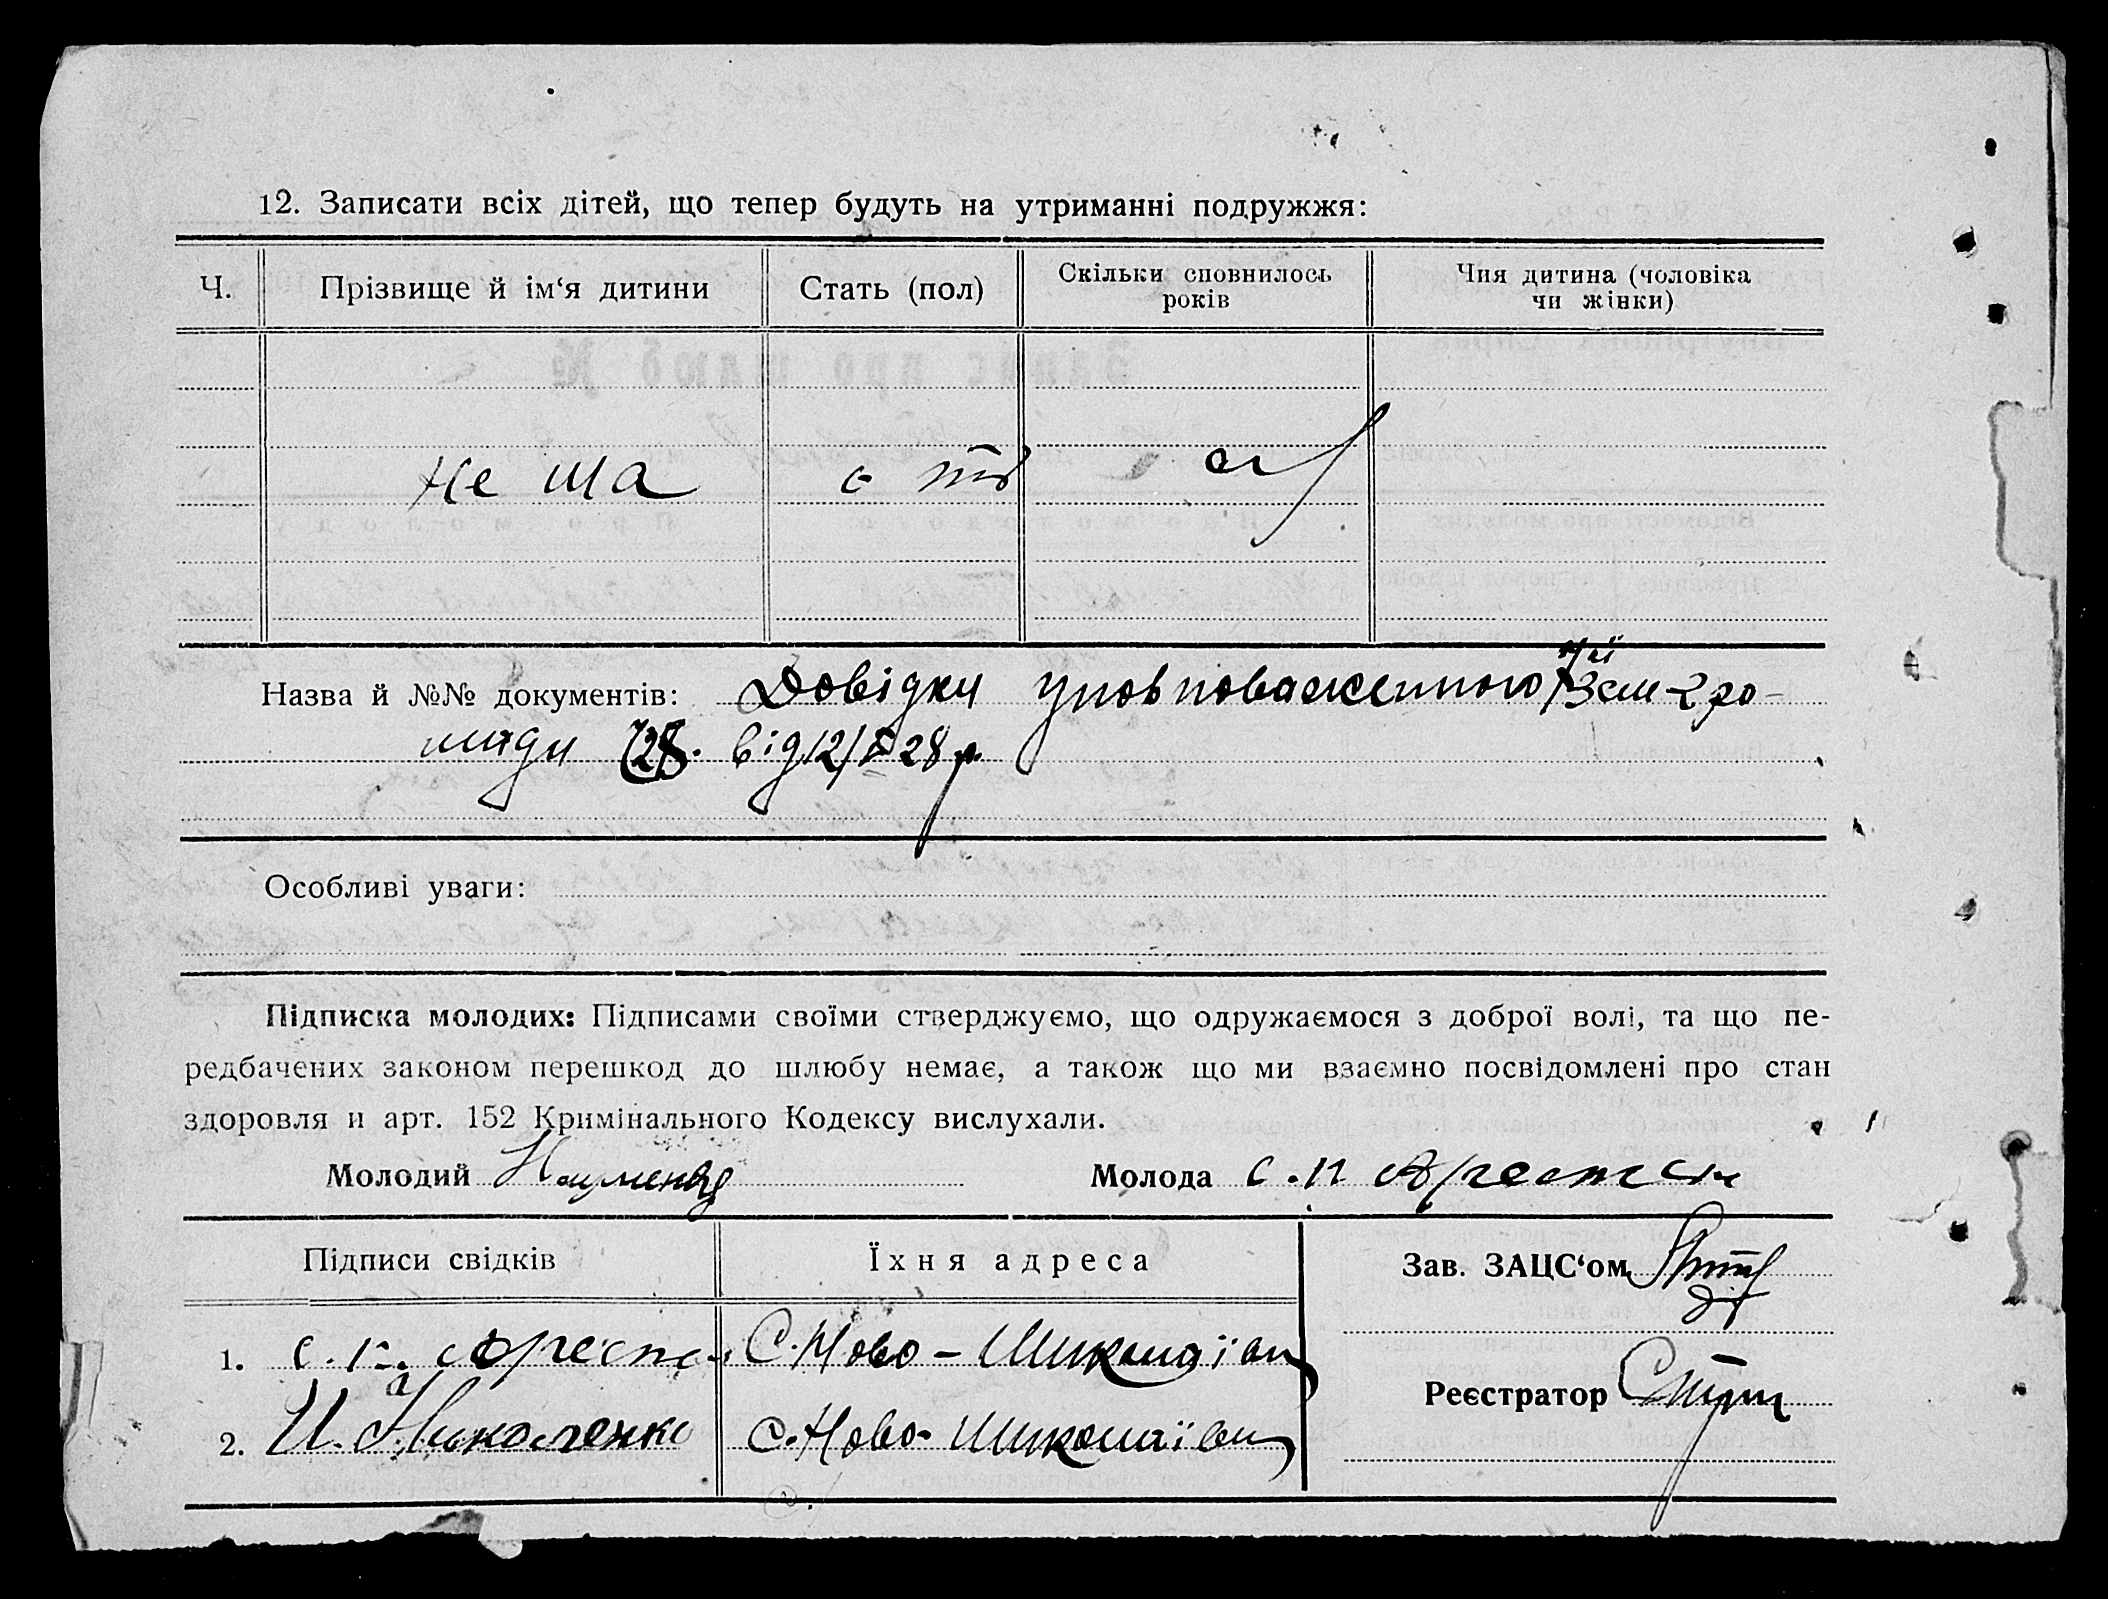 12. Записати всіх дітей, що тепер будуть на утриманні подружжя:
Ч. Прізвище й ім‘я дитини Стать (пол) Скільки сповнилось років Чия дитина (чоловіка чи жінки)
Не ма
Назва й №№ документів: Довідки уповноваженного Зем-гро-
мади від 12/ 28 р.
Особливі уваги:
Підписка молодих: Підписами своїми стверджуємо, що одружаємося з доброї волі, та що пе-
редбачених законом перешкод до шлюбу немає, а також що ми взаємно посвідомлені про стан
здоровля й арт. 152 Кримінального Кодексу вислухали.
Молодий Науменко Молода
Підписи свідків Їхня адреса Зав. ЗАЦС‘ом
1. С. Ново-Миколаївки
Реєстратор
2. И. Николенко С. Ново-Миколаївки